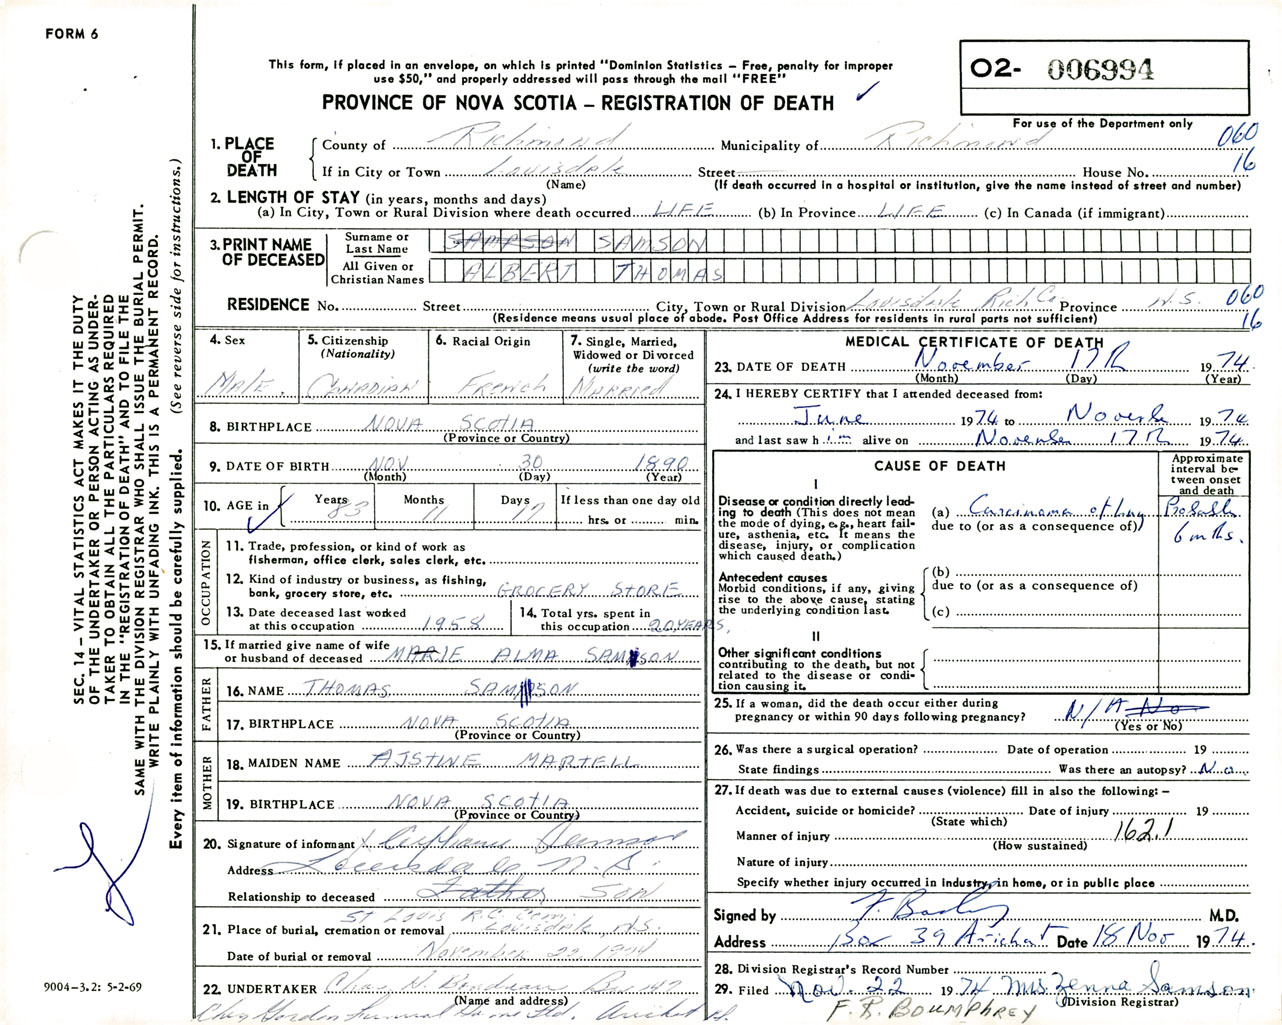 FORM 6
This form, if placed in an envelope, on which is printed "Dominion Statistics – Free, penalty for improper
use $50," and properly addressed will pass through the mail "FREE"
PROVINCE OF NOVA SCOTIA – REGISTRATION OF DEATH ✓
02- 006994
For use of the Department only
1. PLACE OF DEATH
County of Richmond Municipality of Richmond 060
If in City or Town Louisdale Street House No. 16
(Name) (If death occurred in a hospital or institution, give the name instead of street and number)
2. LENGTH OF STAY (in years, months and days)
(a) In City, Town or Rural Division where death occurred LIFE (b) In Province LIFE (c) In Canada (if immigrant)
3. PRINT NAME OF DECEASED
Surname or Last Name SAMPSON SAMSON
All Given or Christian Names ALBERT THOMAS
RESIDENCE No. Street City, Town or Rural Division Louisdale Rich Co Province N.S. 060
(Residence means usual place of abode. Post Office Address for residents in rural parts not sufficient) 16
4. Sex MALE.
5. Citizenship (Nationality) CANADIAN
6. Racial Origin French
7. Single, Married, Widowed or Divorced (write the word) MARRIED
8. BIRTHPLACE NOVA SCOTIA
(Province or Country)
9. DATE OF BIRTH NOV 30 1890
(Month) (Day) (Year)
10. AGE in ✓ Years 83 Months 11 Days 17 If less than one day old
hrs. or min.
OCCUPATION
11. Trade, profession, or kind of work as
fisherman, office clerk, sales clerk, etc.
12. Kind of industry or business, as fishing,
bank, grocery store, etc. GROCERY STORE
13. Date deceased last worked
at this occupation 1958
14. Total yrs. spent in
this occupation 20 YEARS.
15. If married give name of wife
or husband of deceased MARIE ALMA SAMSON
FATHER
16. NAME THOMAS SAMSON
17. BIRTHPLACE NOVA SCOTIA
(Province or Country)
MOTHER
18. MAIDEN NAME AJSTINE MARTELL
19. BIRTHPLACE NOVA SCOTIA
(Province or Country)
20. Signature of informant
Address Louisdale N.S.
Relationship to deceased Father SON
St Louis R.C. Cem.
21. Place of burial, cremation or removal Louisdale N.S.
Date of burial or removal November 22, 1974
22. UNDERTAKER Chas H. Boudreau Box 147
(Name and address)
Funeral Home Ltd. Arichat
MEDICAL CERTIFICATE OF DEATH
23. DATE OF DEATH November 17th 1974.
(Month) (Day) (Year)
24. I HEREBY CERTIFY that I attended deceased from:
June 1974 to November 1974
and last saw him alive on November 17th 1974.
CAUSE OF DEATH
Approximate interval between onset and death
I
Disease or condition directly lead-
ing to death (This does not mean
the mode of dying, e.g., heart fail-
ure, asthenia, etc. It means the
disease, injury, or complication
which caused death.)
(a) Carcinoma of lung Probably
due to (or as a consequence of) 6 mths.
Antecedent causes
Morbid conditions, if any, giving
rise to the above cause, stating
the underlying condition last.
(b)
due to (or as a consequence of)
(c)
II
Other significant conditions
contributing to the death, but not
related to the disease or condi-
tion causing it.
25. If a woman, did the death occur either during
pregnancy or within 90 days following pregnancy? N/A No
(Yes or No)
26. Was there a surgical operation? Date of operation 19
State findings Was there an autopsy? No
27. If death was due to external causes (violence) fill in also the following: –
Accident, suicide or homicide? Date of injury 19
(State which)
Manner of injury 162.1
(How sustained)
Nature of injury
Specify whether injury occurred in industry, in home, or in public place
Signed by M.D.
Address Box 39 Arichat Date 18 Nov 1974.
28. Division Registrar's Record Number
29. Filed Nov. 22 1974 Mrs Zenna Samson
(Division Registrar)
F. R. BOUMPHREY
SEC. 14 – VITAL STATISTICS ACT MAKES IT THE DUTY
OF THE UNDERTAKER OR PERSON ACTING AS UNDER-
TAKER TO OBTAIN ALL THE PARTICULARS REQUIRED
IN THE "REGISTRATION OF DEATH" AND TO FILE THE
SAME WITH THE DIVISION REGISTRAR WHO SHALL ISSUE THE BURIAL PERMIT.
WRITE PLAINLY WITH UNFADING INK. THIS IS A PERMANENT RECORD.
Every item of information should be carefully supplied. (See reverse side for instructions.)
9004-3.2: 5-2-69